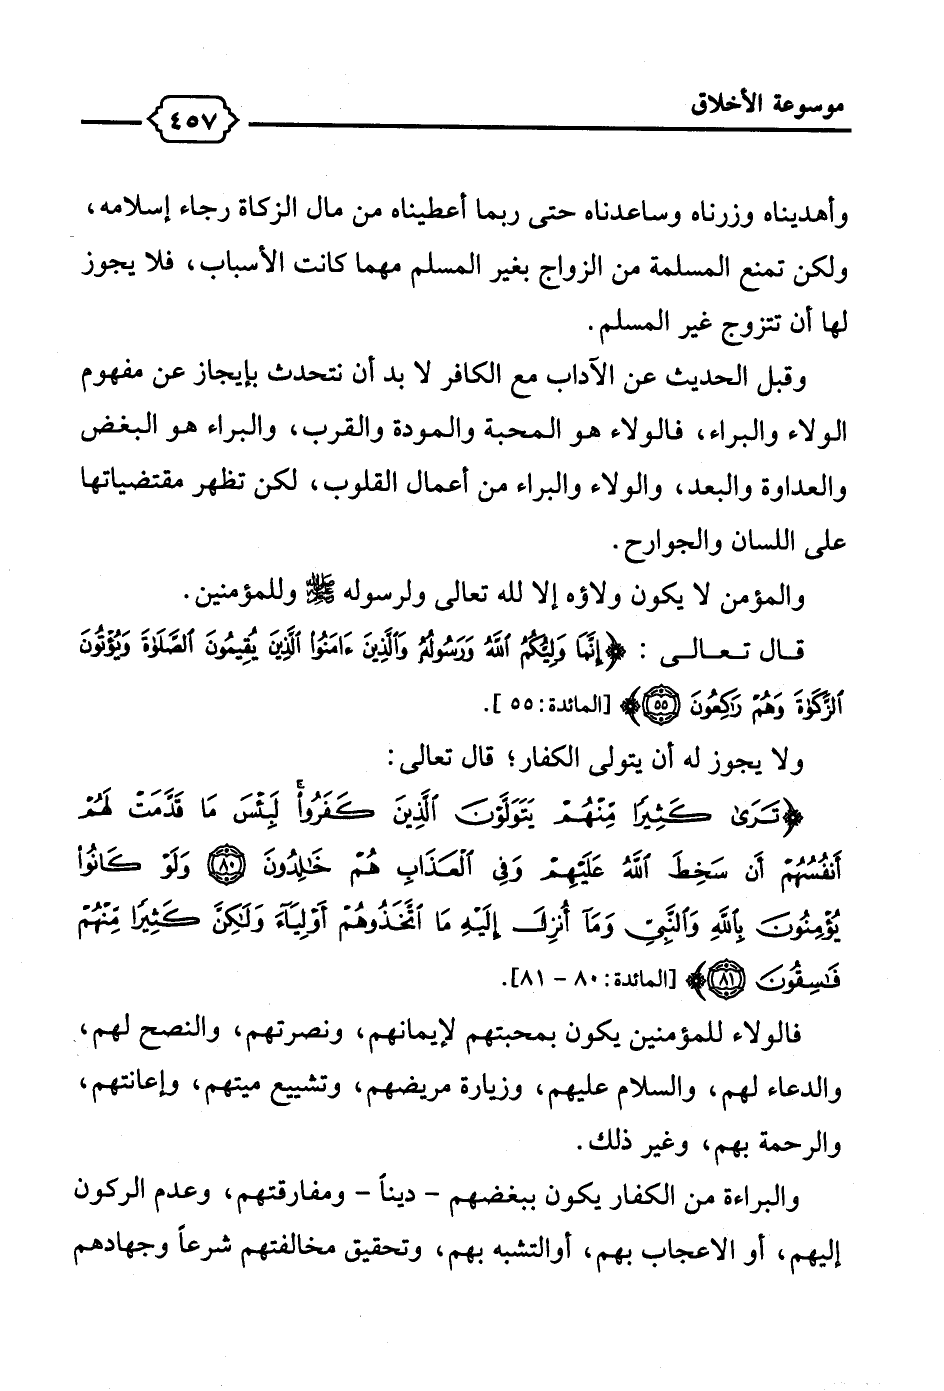 موسوعة الأخلاق
٤٥٧
وأهديناه وزرناه وساعدناه حتى ربما أعطيناه من مال الزكاة رجاء إسلامه،
ولكن تمنع المسلمة من الزواج بغير المسلم مهما كانت الأسباب، فلا يجوز
لها أن تتزوج غير المسلم.
وقبل الحديث عن الآداب مع الكافر لا بد أن نتحدث بإيجاز عن مفهوم
الولاء والبراء، فالولاء هو المحبة والمودة والقرب، والبراء هو البغض
والعداوة والبعد، والولاء والبراء من أعمال القلوب، لكن تظهر مقتضياتها
على اللسان والجوارح.
والمؤمن لا يكون ولاؤه إلا لله تعالى ولرسوله ﷺ وللمؤمنين.
قال تعالى : ﴿إِنَّمَا وَلِيُّكُمُ ٱللَّهُ وَرَسُولُهُۥ وَٱلَّذِينَ ءَامَنُوا۟ ٱلَّذِينَ يُقِيمُونَ ٱلصَّلَوٰةَ وَيُؤْتُونَ
ٱلزَّكَوٰةَ وَهُمْ رَٰكِعُونَ ٥٥﴾ [المائدة: ٥٥].
ولا يجوز له أن يتولى الكفار؛ قال تعالى:
﴿تَرَىٰ كَثِيرًا مِّنْهُمْ يَتَوَلَّوْنَ ٱلَّذِينَ كَفَرُوا۟ ۚ لَبِئْسَ مَا قَدَّمَتْ لَهُمْ
أَنفُسُهُمْ أَن سَخِطَ ٱللَّهُ عَلَيْهِمْ وَفِى ٱلْعَذَابِ هُمْ خَٰلِدُونَ ٨٠ وَلَوْ كَانُوا۟
يُؤْمِنُونَ بِٱللَّهِ وَٱلنَّبِىِّ وَمَآ أُنزِلَ إِلَيْهِ مَا ٱتَّخَذُوهُمْ أَوْلِيَآءَ وَلَٰكِنَّ كَثِيرًا مِّنْهُمْ
فَٰسِقُونَ ٨١﴾ [المائدة: ٨٠ - ٨١].
فالولاء للمؤمنين يكون بمحبتهم لإيمانهم، ونصرتهم، والنصح لهم،
والدعاء لهم، والسلام عليهم، وزيارة مريضهم، وتشييع ميتهم، وإعانتهم،
والرحمة بهم، وغير ذلك.
والبراءة من الكفار يكون ببغضهم - ديناً - ومفارقتهم، وعدم الركون
إليهم، أو الاعجاب بهم، أوالتشبه بهم، وتحقيق مخالفتهم شرعاً وجهادهم